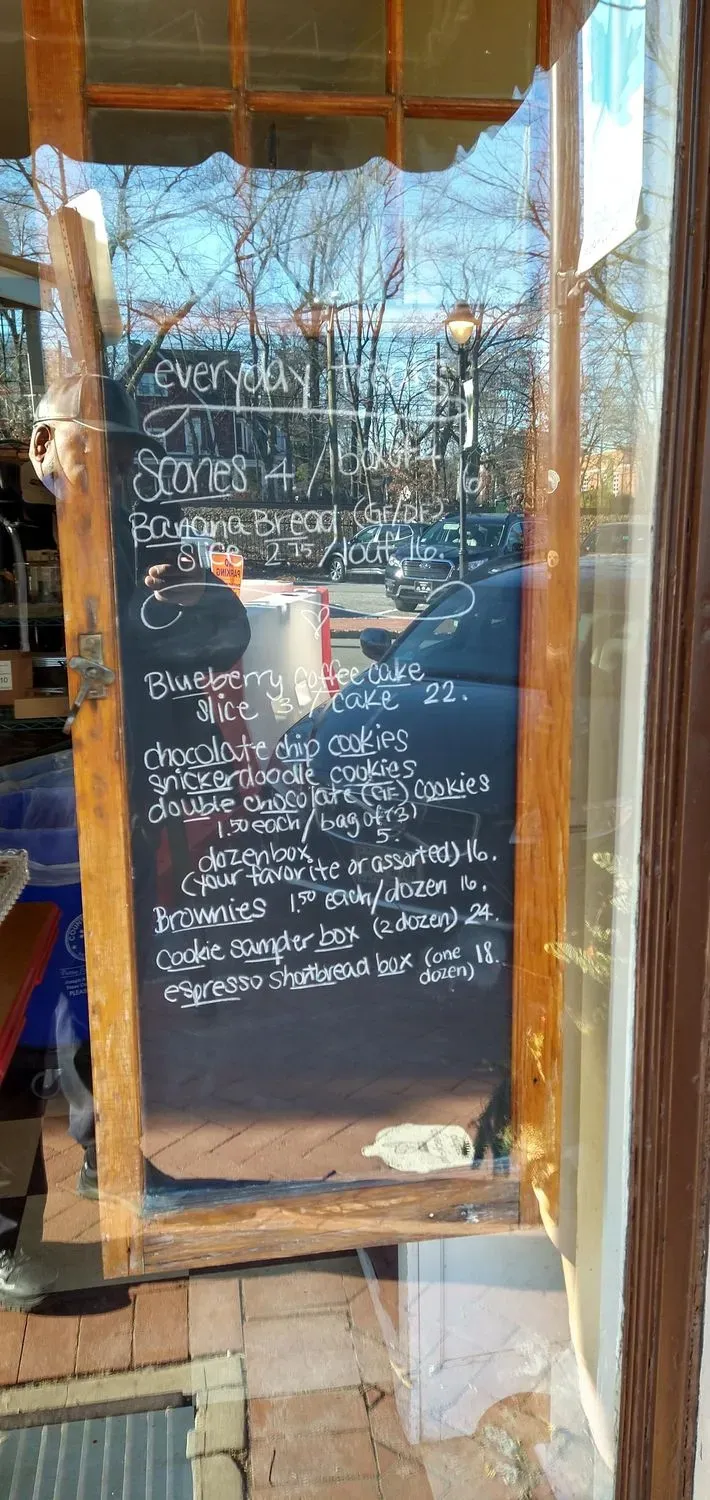 everyday treats
Scones 4 /
6
Banana Bread (GF/DF)
slice 2.75 / loaf 16.
PARKING
Blueberry coffee cake
slice 3 / cake 22.
chocolate chip cookies
snickerdoodle cookies
double chocolate (GF) cookies
1.50 each / bag of (3)
5.
dozen box
(your favorite or assorted) 16.
Brownies 1.50 each/dozen 16.
cookie sampler box (2 dozen) 24.
espresso shortbread box (one dozen) 18.